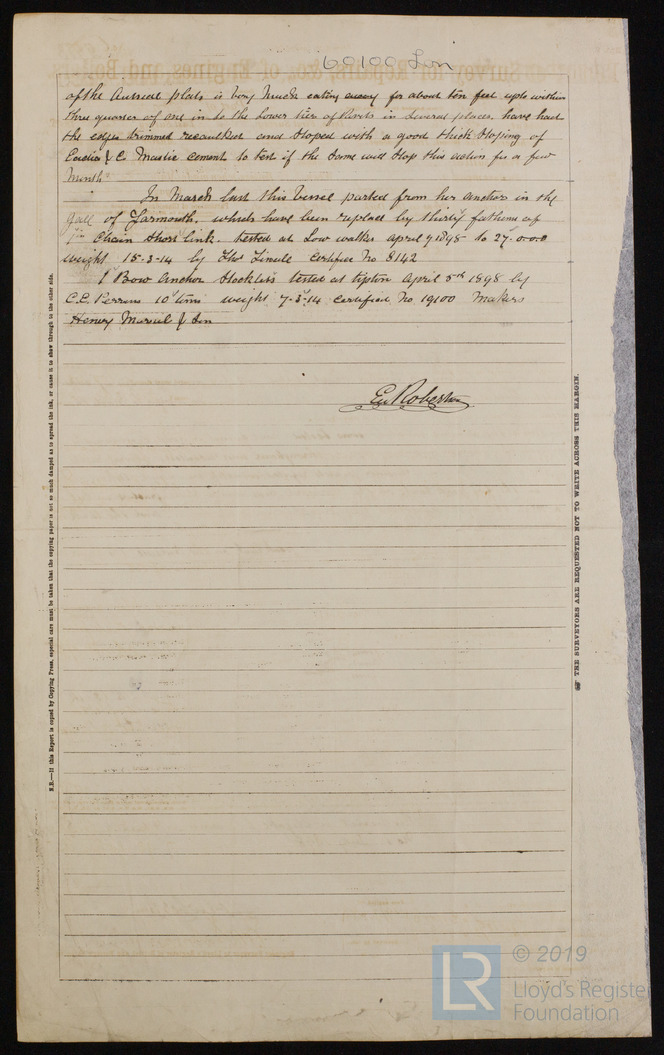 60100 Lon
of the Outside plats is very Much eating away for about ten feet upto within
three quarter of one in to the Lower tier of Rivits in Several places, have had
the edges trimmed recaulked and Stoped with a good thick Stoping of
& C. Mastic cement to test if the Same will Stop this action for a few
Month
In March last this Vessel parted from her anchor in the
gall of Yarmouth. which have been replace by thirty fathoms of
Chain Short link. tested at Low walker april 7 1898 to 27.0.0.0
weight 15-3-14 by Thos certifice No 8142
1 Bow Anchor Stockless tested at tipton April 5th 1898 by
C.E. Perrins 10 tons weight 7-3-14 certificet No 19100 Makers
Henry & Son
Robertson
N.B.—If this Report is copied by Copying Press, especial care must be taken that the copying paper is not so much damped as to spread the ink, or cause it to show through to the other side.
THE SURVEYORS ARE REQUESTED NOT TO WRITE ACROSS THIS MARGIN.
LR
© 2019
Lloyd's Register
Foundation